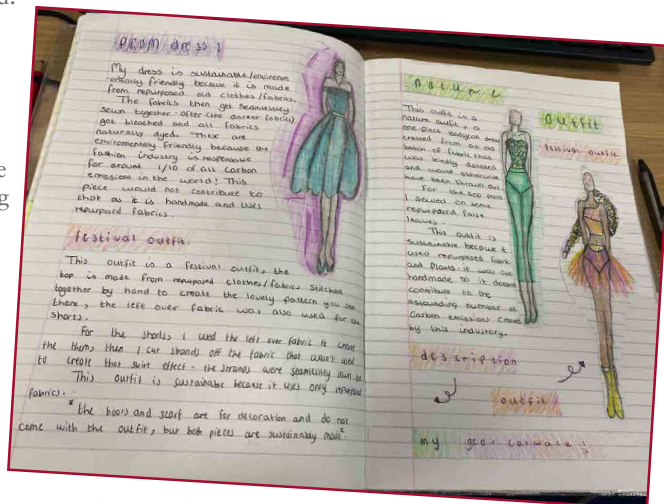 PROM dress!
My dress is sustainable/environm
entally friendly because it is made
from repurposed old clothes/fabrics.
The fabrics then get seamlessly
sewn together - after (the darker fabrics)
get bleached and all fabrics
naturally dyed. These are
environmentally friendly because the
fashion industry is responsible
for around 1/10 of all carbon
emissions in the world! This
piece would not contribute to
that as it is handmade and uses
repurposed fabrics.
festival outfit.
This outfit is a festival outfit, the
top is made from repurposed clothes/fabrics stitched
together by hand to create the lovely pattern you see
there, the left over fabric was also used for the
shorts.
For the shorts, I used the left over fabric to create
the them, then I cut strands off the fabric that wasn't used
to create that skirt effect - the strands were seamlessly sewn on
This outfit is sustainable because it uses only repurposed
fabrics.
*the boots and scarf are for decoration and do not
come with the outfit, but both pieces are sustainably made*
nature
outfit
This outfit is a
nature outfit, a
one-piece bodycon
created from an old
batch of fabric that
was kindly donated
and would otherwise
have been thrown out.
For the top part
I added on some
repurposed false
leaves.
This outfit is
sustainable because it
used repurposed fabric
and plants - it was all
handmade so it doesnt
contribute to the
astounding number of
carbon emissions created
by this industry.
festival outfit
description
outfit
my catwalk!